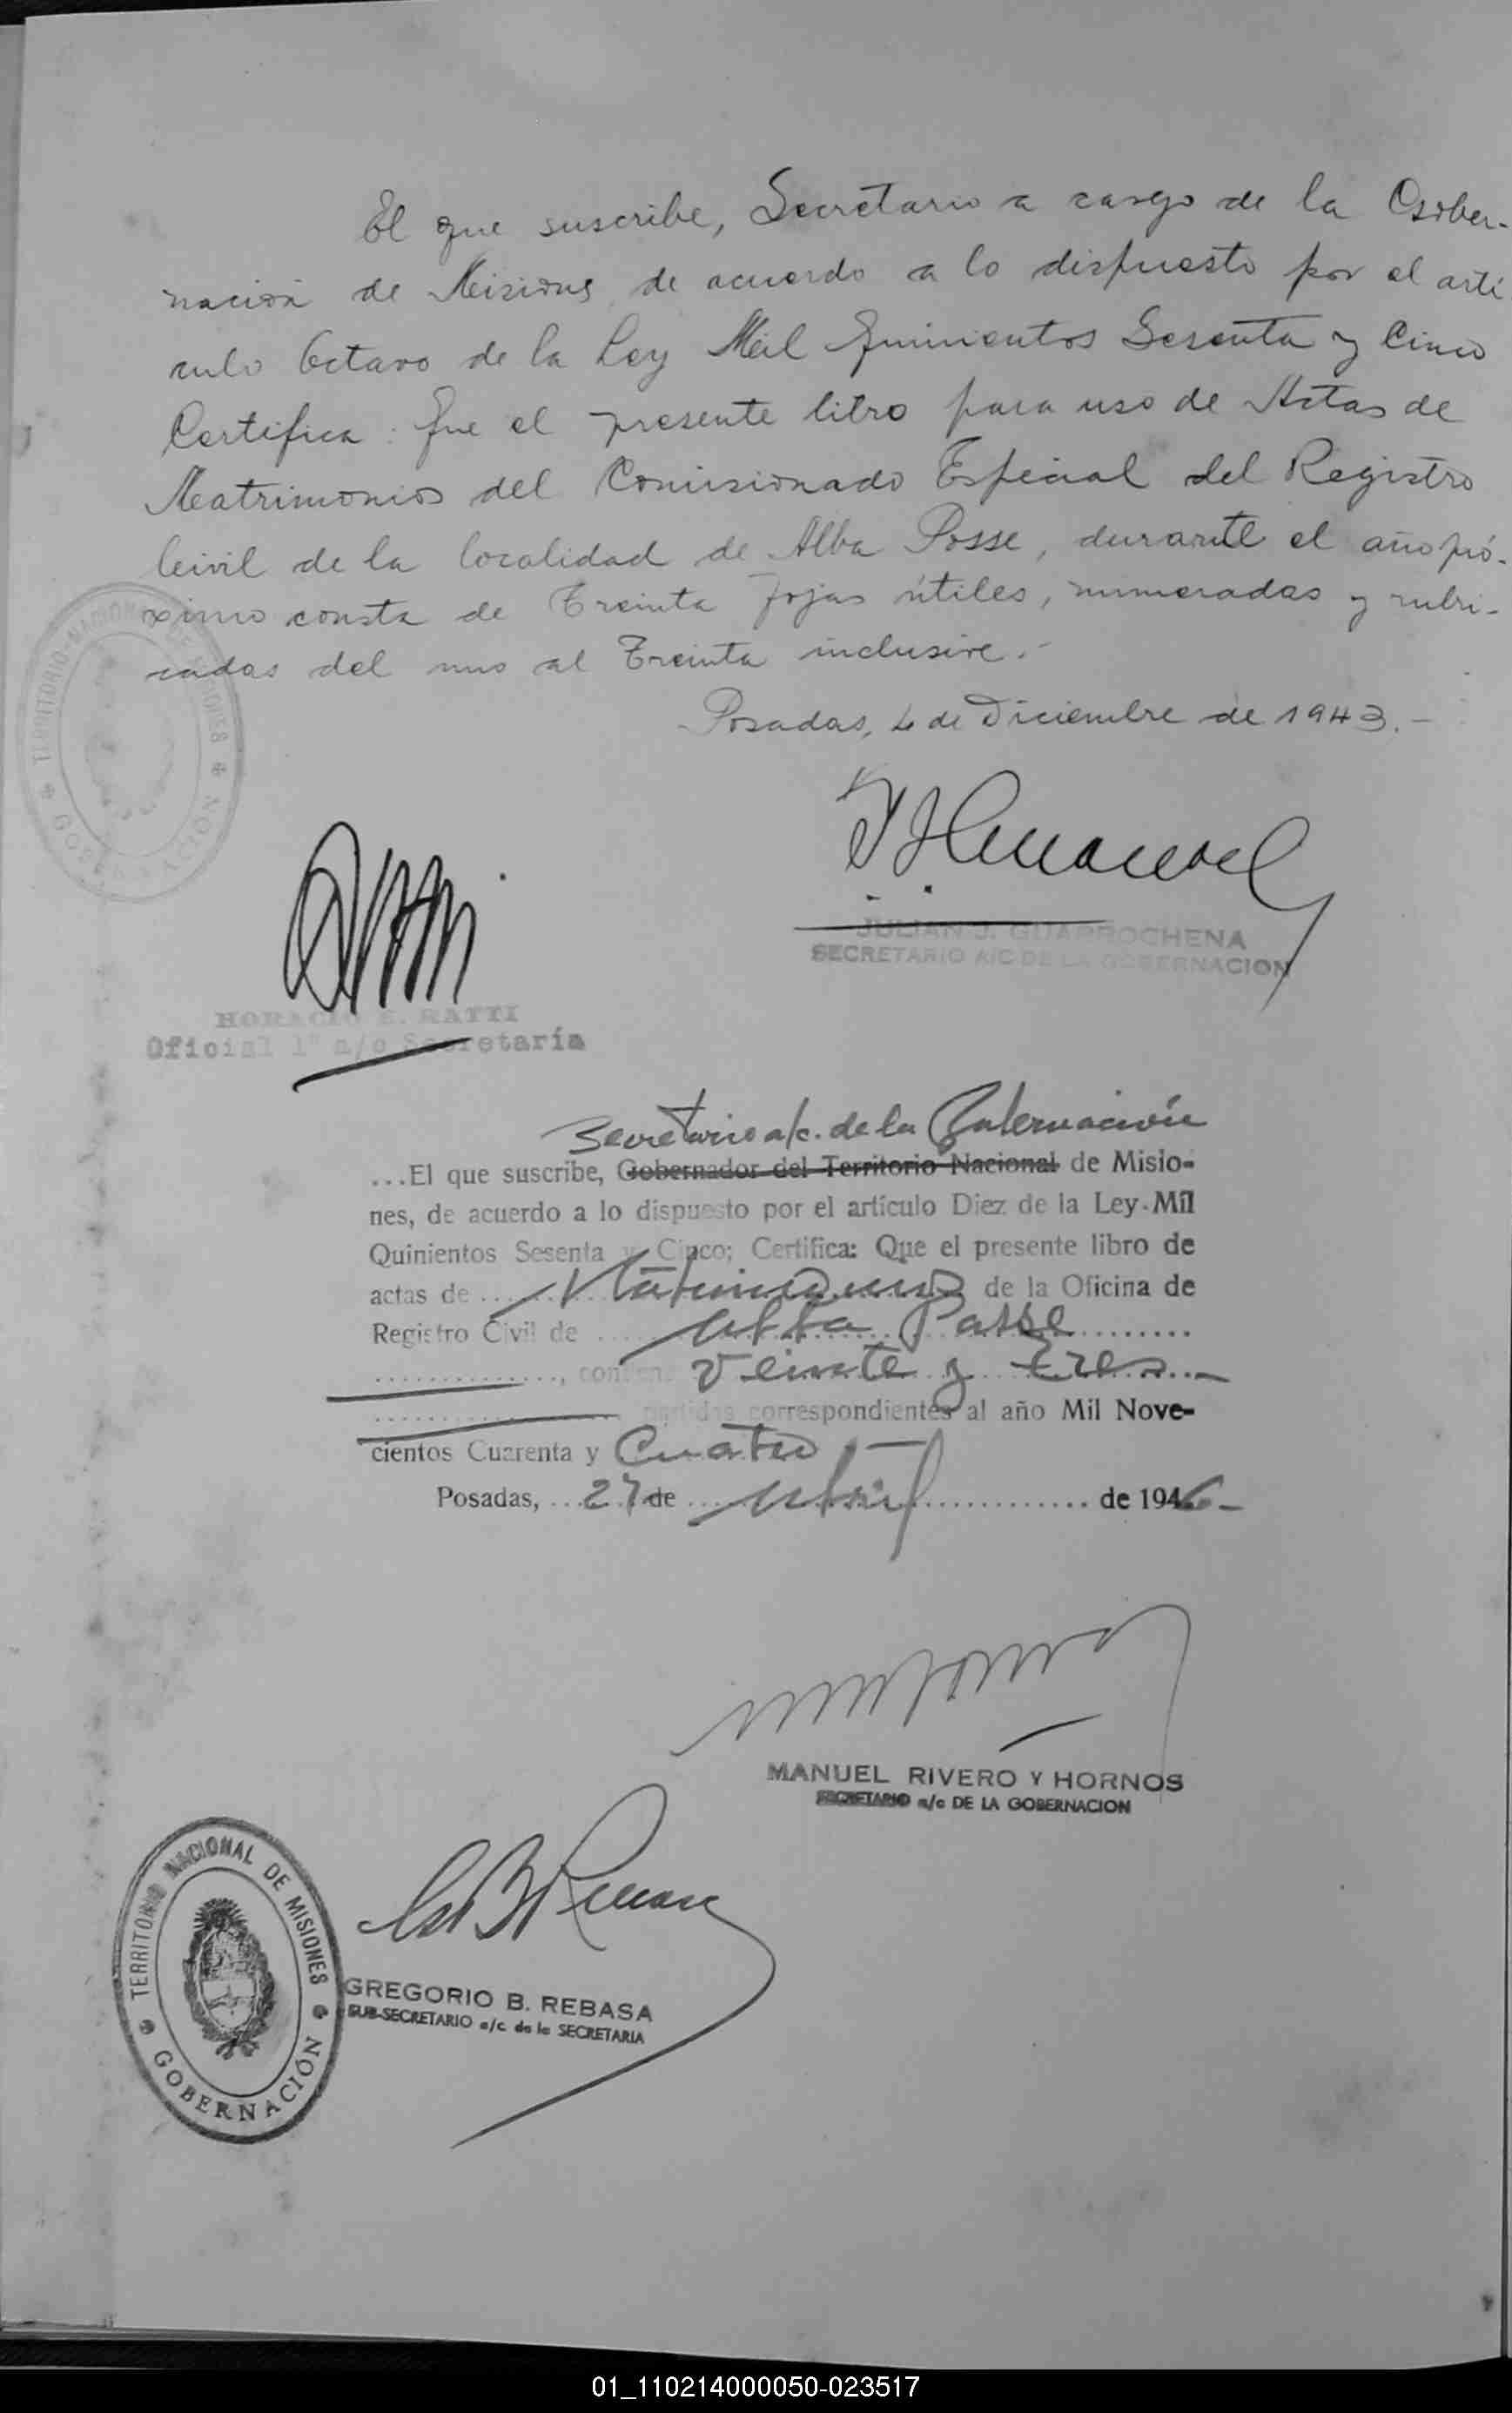 El que suscribe, Secretario a cargo de la Gober-
nación de Misiones, de acuerdo a lo dispuesto por el artí
culo Octavo de la Ley Mil Quinientos Sesenta y Cinco
Certifica: Que el presente libro para uso de Actas de
Matrimonios del Comisionado Especial del Registro
Civil de la localidad de Alba Posse, durante el año pró-
ximo consta de Treinta fojas útiles, numeradas y rubri-
cadas del uno al Treinta inclusive.-
Posadas, 4 de Diciembre de 1943.-
TERRITORIO NACIONAL DE MISIONES
GOBERNACION
JULIAN J. GUARROCHENA
SECRETARIO A/C DE LA GOBERNACION
HORACIO E. RATTI
Oficial 1º a/c Secretaría
Secretario a/c. de la Gobernación
...El que suscribe, Gobernador del Territorio Nacional de Misio-
nes, de acuerdo a lo dispuesto por el artículo Diez de la Ley Mil
Quinientos Sesenta y Cinco; Certifica: Que el presente libro de
actas de ... Matrimonios de la Oficina de
Registro Civil de .... Alba Posse ..........
.............., contiene Veinte y Tres...-
............... partidas correspondientes al año Mil Nove-
cientos Cuarenta y Cuatro.-
Posadas, ...27 de ... Abril ............... de 1946-
MANUEL RIVERO Y HORNOS
SECRETARIO a/c DE LA GOBERNACION
TERRITORIO NACIONAL DE MISIONES
GOBERNACIÓN
GREGORIO B. REBASA
SUB-SECRETARIO a/c de la SECRETARIA
01_110214000050-023517